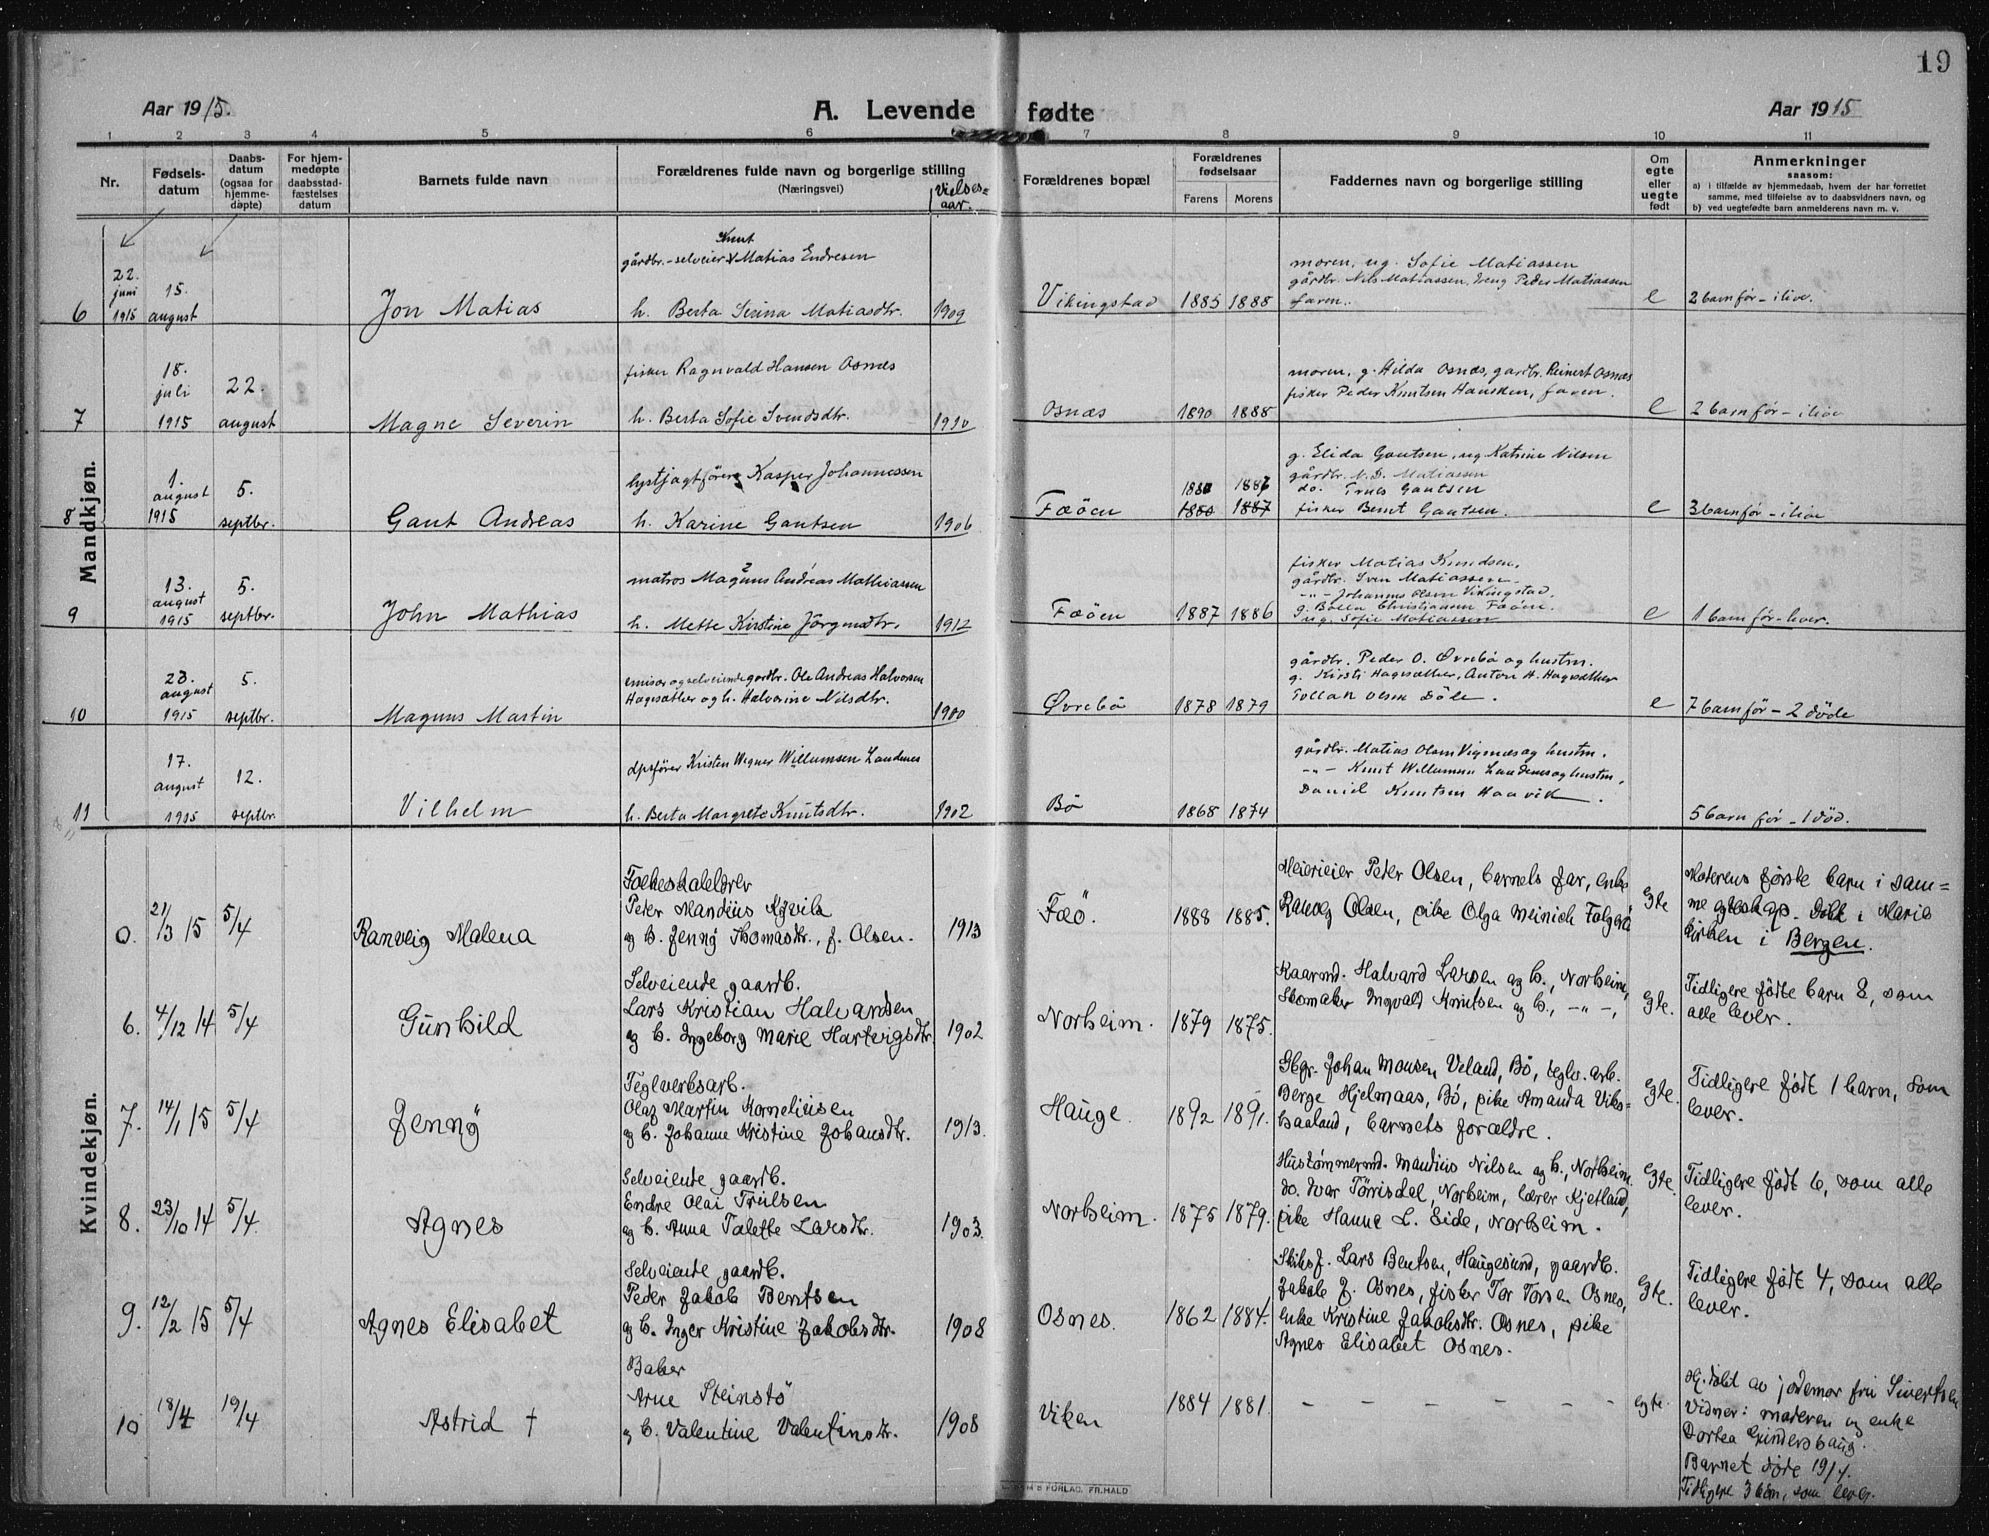 19
Aar 1915.
A. Levende fødte
Aar 1915
1 2 3 4 5 6 7 8 9 10 11
Nr.
Fødsels-
datum
Daabs-
datum
(ogsaa for
hjemme-
døpte)
For hjem-
medøpte
daabsstad-
fæstelses
datum
Barnets fulde navn
Forældrenes fulde navn og borgerlige stilling
(Næringsvei)
Vielses-
aar.
Forældrenes bopæl
Forældrenes
fødselsaar
Farens Morens
Faddernes navn og borgerlige stilling
Om
egte
eller
uegte
født
Anmerkninger
saasom:
a) i tilfælde av hjemmedaab, hvem der har forrettet
samme, med tilføielse av to daabsvidners navn, og
b) ved uegtefødte barn anmelderens navn m. v.
Mandkjøn.
6
22.
juni
1915
15.
august
Jon Matias
Knut
gårdbr.-selveier Matias Endresen
h. Berta Serina Matiasdtr.
1909
Vikingstad
1885 1888
moren, ug. Sofie Matiassen
gårdbr. Nils Matiassen, Peder Matiassen
faren.
e
2 barn før - ilive.
7
18.
juli
1915
22.
august
Magne Severin
fisker Ragnvald Hansen Osnæs
h. Berta Sofie Svendsdtr.
1910
Osnæs
1890 1888
moren, g. Hilda Osnæs, gardbr. Reinert Osnæs
fisker Peder Knutsen Hausken, faren.
e
2 barn før - ilive
8
1.
august
1915
5.
septbr.
Gaut Andreas
lystjagtfører Kasper Johannessen
h. Karine Gautsen
1906
Føøen
1880 1887
1880 1887
g. Elida Gautsen, ug. Katrine Nilsen
gårdbr. N. D. Matiassen
do. Truls Gautsen
fisker Bernt Gautsen.
e
3 barn før - ilive
9
13.
august
1915
5.
septbr.
John Mathias
matros Magnus Andreas Mathiassen
h. Mette Kirstine Jørgensdtr.
1912
Fæøen
1887 1886
fisker Matias Knudsen,
gårdbr. Sven Matiassen
-"- Johannes Olsen Vikingstad,
g. Bolla Christiansen Fæøen.
ug. Sofie Matiassen
e
1 barn før - lever.
10
23.
august
1915
5.
septbr.
Magnus Martin
emisær og selveiende gardbr. Ole Andreas Halvorsen
Hagesæther og h. Halvorine Nilsdtr.
1900
Øvrebø
1878 1879
gårdbr. Peder O. Øvrebø og hustru.
g. Kirsti Hagesæther, Anton H. Hagesæther
Tollak Olsen Døle.
e
7 barn før - 2 døde
11
17.
august
1915
12.
septbr.
Vilhelm
dpsfører Kristen Wegner Willumsen Landenes
h. Berta Margrete Knutsdtr.
1902
Bø
1868 1874
gårdbr. Matias Olsen Vignæs og hustru.
-"- Knut Willumsen Landenes og hustru,
Daniel Knutsen Haavik.
5 barn før - 1 død.
Kvindekjøn.
0.
21/3 15
5/4
Ranveig Malena
Folkeskolelærer
Peter Mandius Kjvik
og h. Jenny Thomasdtr., f. Olsen.
1913
Fæø.
1888 1885.
Meierieier Peter Olsen, barnets far, enke
Ranveig Olsen, pike Olga Meinich Falgerø
Egte
Moderens første barn i sam=
me egteskap. Døbt i Marie
kirken i Bergen.
6.
4/12 14
5/4
Gunhild
Selveiende gaardb.
Lars Kristian Halvardsen
og h. Ingeborg Marie Hartvigsdtr.
1902
Norheim.
1879 1875.
Kaarmd. Halvard Larsen og h., Norheim,
Skomaker Ingvald Knutsen og h., -"-,
Egte.
Tidligere fødte barn 8, som
alle lever.
7.
14/1 15
5/4
Jenny
Teglverksarb.
Olaf Martin Korneliusen
og h. Johanne Kristine Johansdtr.
1913.
Hauge.
1892 1891.
Gbgr. Johan Monsen Veland, Bø, teglv. arb.
Berge Hjelmaas, Bø, pike Amanda Viks=
baaland, barnets forældre.
Egte.
Tidligere født 1 barn, som
lever.
8.
23/10 14
5/4
Agnes
Selveiende gaardb.
Endre Olai Trulsen
og h. Anna Talette Larsdtr.
1903.
Norheim.
1875 1879.
Hustømmermd. Mandius Nilsen og h., Norheim,
do. Ivar Tørrisdal, Norheim, lærer Kjetland,
pike Hanna L. Eide, Norheim.
Egte.
Tidligere født 6, som alle
lever.
9.
12/2 15
5/4
Agnes Elisabet
Selveiende gaardb.
Peder Jakob Berntsen
og h. Inger Kristine Jakobsdtr.
1908
Osnes.
1862 1884.
Skibsf. Lars Bentsen, Haugesund, gaardb.
Jakob J. Osnes, fisker Tor Torsen Osnes,
enke Kristine Jakobsdtr. Osnes, pike
Agnes Elisabet Osnes.
Egte.
Tidligere født 4, som alle
lever.
10
18/4
19/4
Astrid †
Baker
Arne Steinstø
og h. Valentine Valentinsdtr.
1908
Viken
1884 1881.
- - - - - -
Egte.
Hj. døbt av jodemor fru Sivertsen
Vidner: moderen og enke
Dortea Gundershaug.
Barnet døde 19/4.
Tidligere 3 barn, som lever.
S FORLAG, FR.HALD